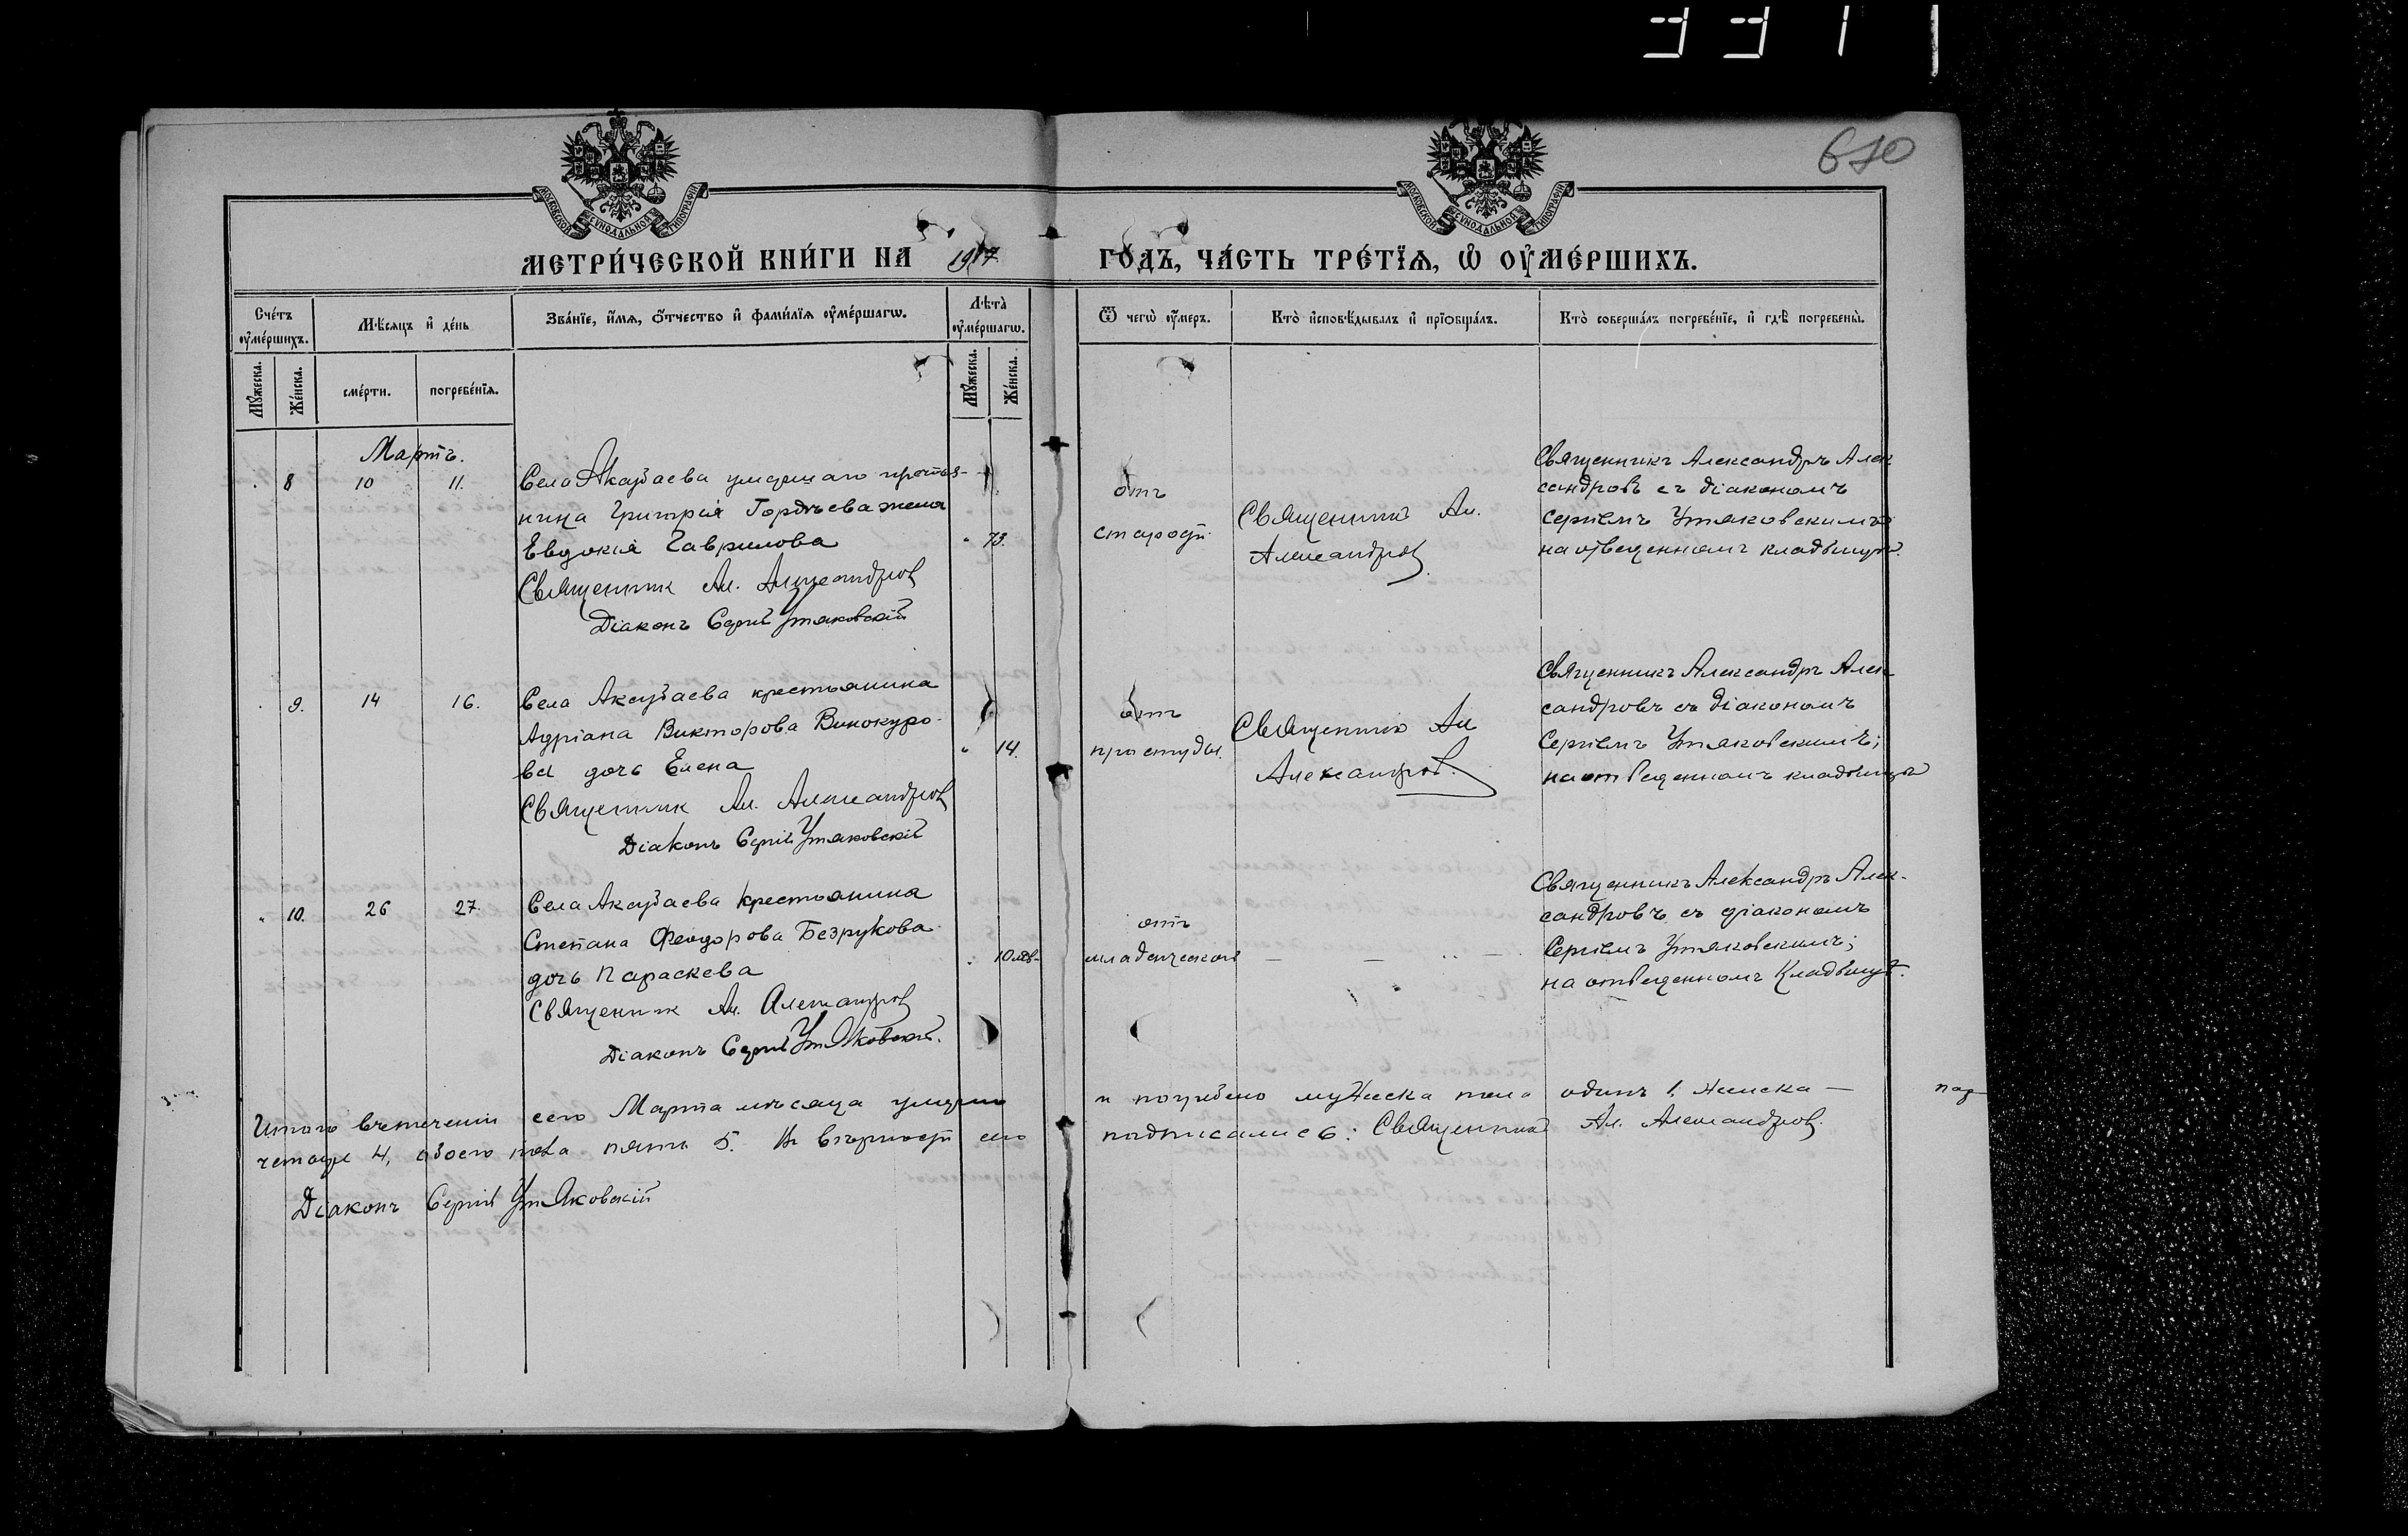 3311
610
МОСКОВСКОЙ СѴНОДАЛЬНОЙ ТИПОГРАФІИ
МОСКОВСКОЙ СѴНОДАЛЬНОЙ ТИПОГРАФІИ
МЕТРИ́ЧЕСКОЙ КНИ́ГИ НА 1917 ГО́ДЪ, ЧА́СТЬ ТРЕ́ТЇѦ, Ѡ҆ ОУ҆МЕ́РШИХЪ.
Сче́тъ оу҆ме́ршихъ.
Мꙋ́жеска.
Же́нска.
Мѣ́сяцъ и҆ де́нь
сме́рти.
погребе́нїѧ.
Зва́нїе, и҆́мѧ, ѻ҆́тчество и҆ фами́лїѧ оу҆ме́ршагѡ.
Лѣта̀ оу҆ме́ршагѡ.
Мꙋ́жеска.
Же́нска.
Ѿ чегѡ̀ оу҆́меръ.
Кто̀ и҆сповѣ́дывалъ и҆ прїѡбща́лъ.
Кто̀ соверша́лъ погребе́нїе, и҆ гдѣ̀ погребены̀.
Мартъ.
8 10 11.
Села Аксубаева умершаго крестья-
нина Григорія Гордѣева жена
Евдокія Гаврилова
" 73.
Священник Ал. Александров
Діаконъ Сергій Утяковскій
отъ
старости.
Священник Ал.
Александров.
Священникъ Александръ Алек
сандровъ съ діакономъ
Сергіемъ Утяковскимъ
на отведенномъ кладбищѣ.
9. 14 16.
Села Аксубаева крестьянина
Адріана Викторова Винокуро-
ва дочь Елена
" 14.
Священник Ал. Александров
Діаконъ Сергій Утяковскій
отъ
простуды.
Священник Ал
Александров.
Священникъ Александръ Алек
сандровъ съ діакономъ
Сергіемъ Утяковскимъ;
на отведенномъ кладбищѣ
" 10. 26 27.
Села Аксубаева крестьянина
Степана Феодорова Безрукова
дочь Параскева
10 мѣс.
Священник Ал. Александров
Діаконъ Сергій Утяковскій.
отъ
младенческой
— — .. —
Священникъ Александръ Алек-
сандровъ съ діакономъ
Сергіемъ Утяковскимъ;
на отведенномъ кладбищѣ.
Итого втечении сего Марта мѣсяца умерло и погребено мужеска пола одинъ 1. женска —
четыре 4, обоего пола пять 5. Въ вѣрности сего подписались: Священник Ал. Александров.
Діаконъ Сергій Утяковскій